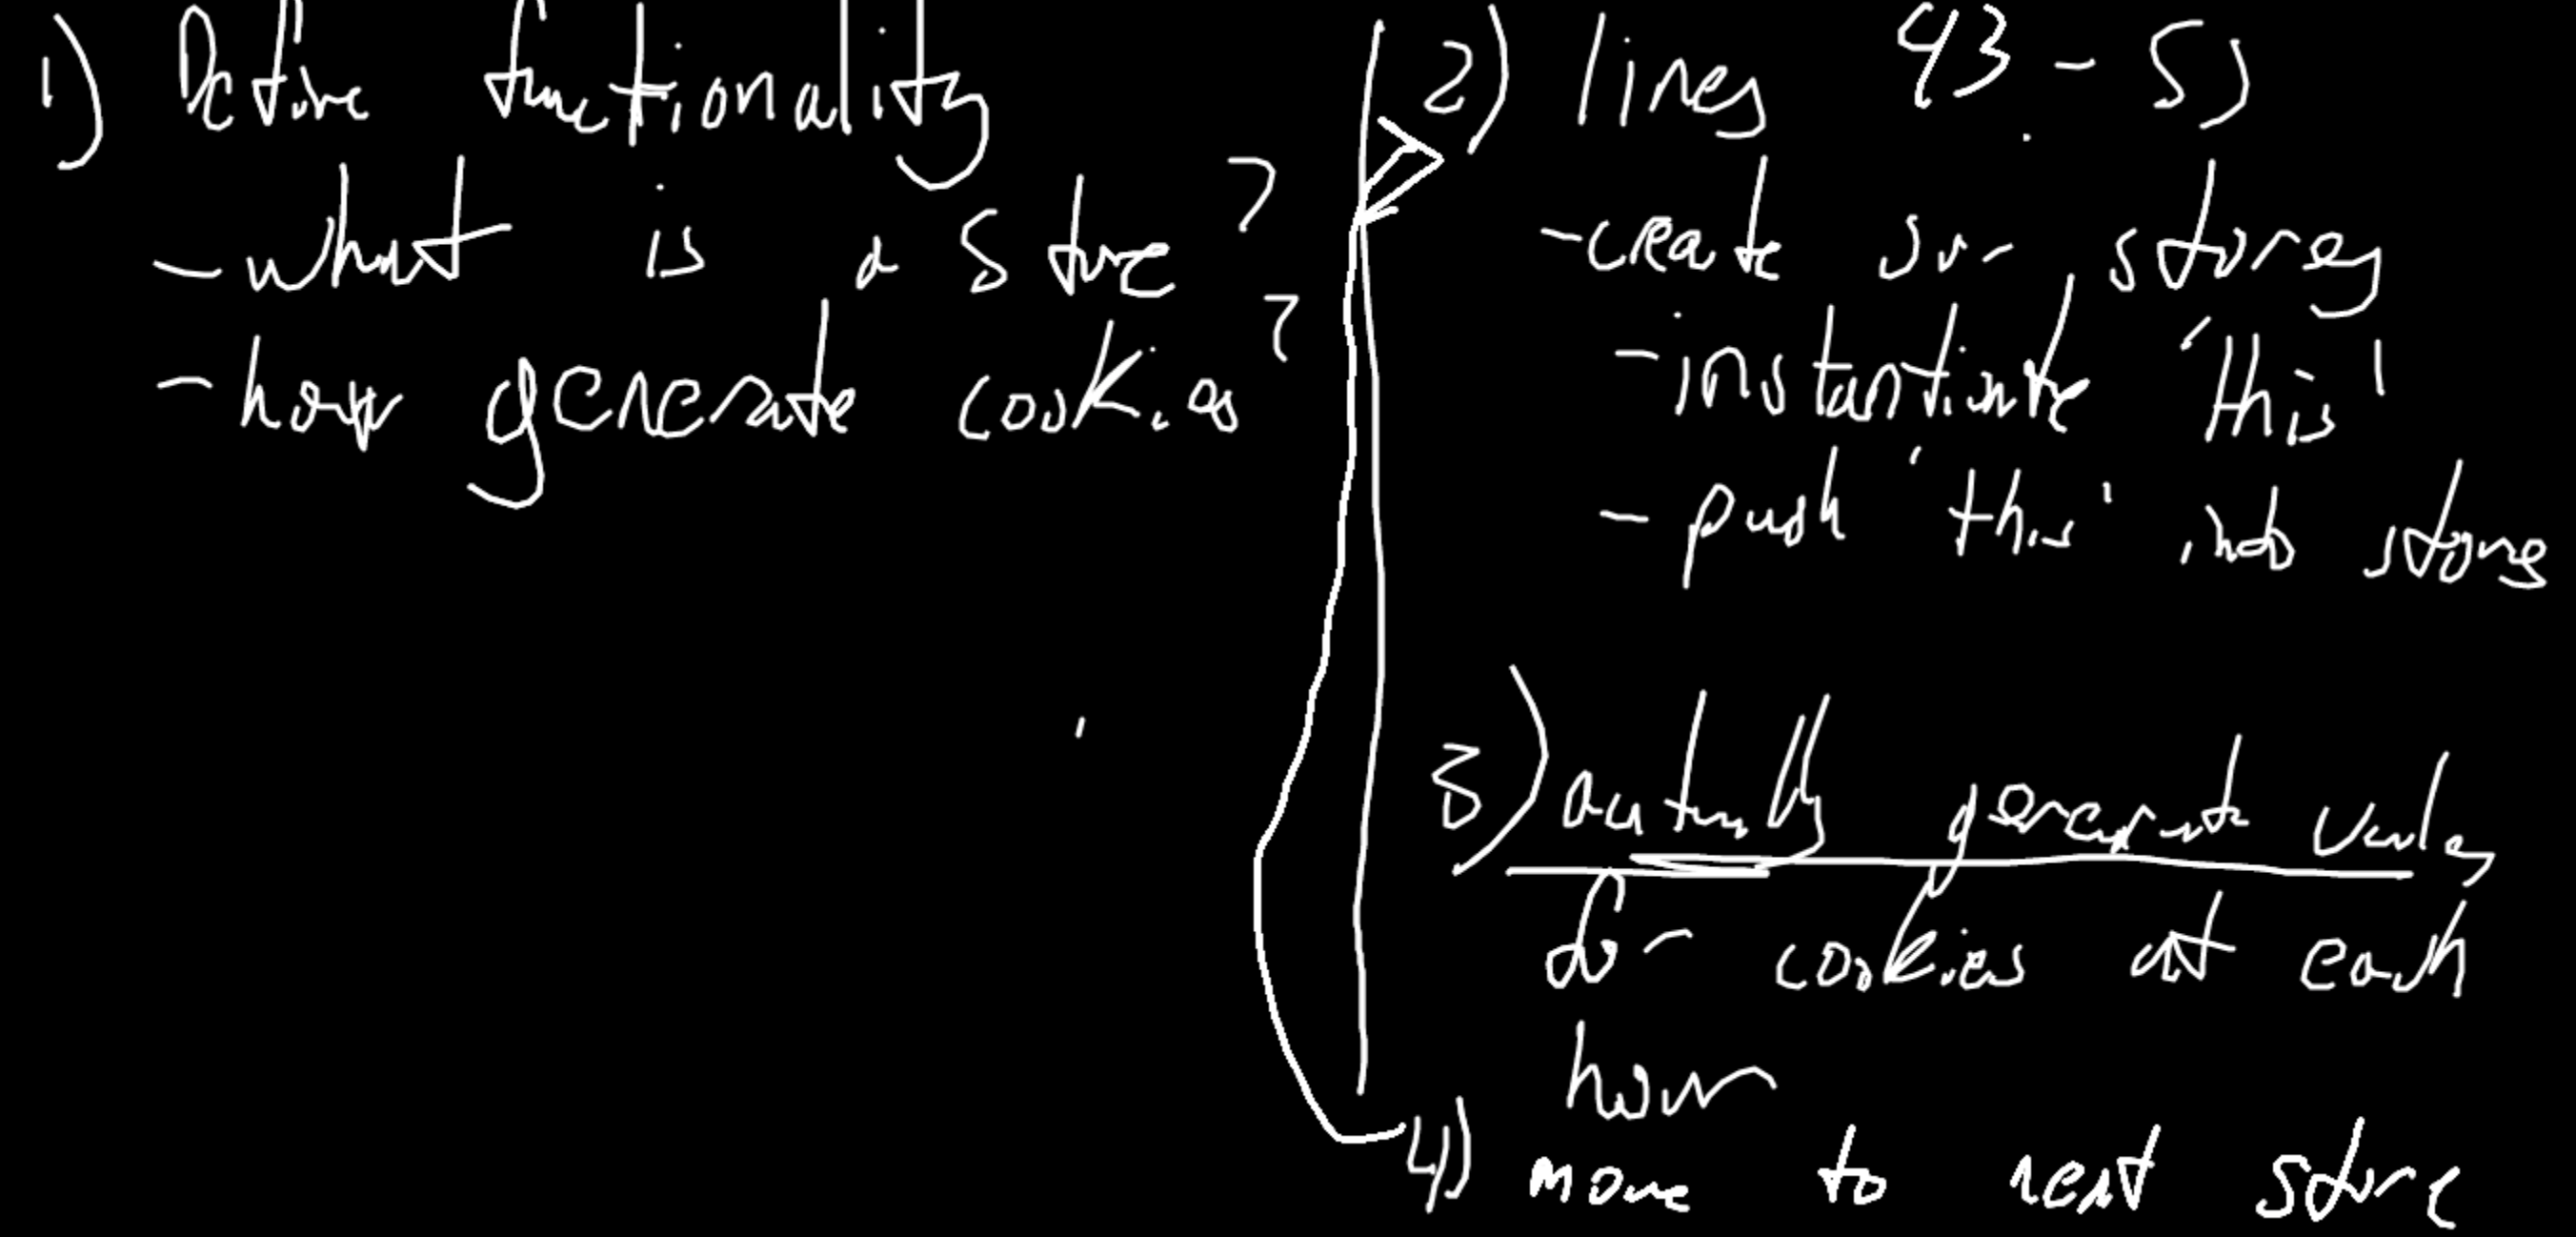 1) Define functionality
- what is a store?
- how generate cookies?
2) lines 43-55
- create our stores
- instantiate 'this'
- push 'this' into stores
3) actually generate values
for cookies at each
hour
4) move to next store